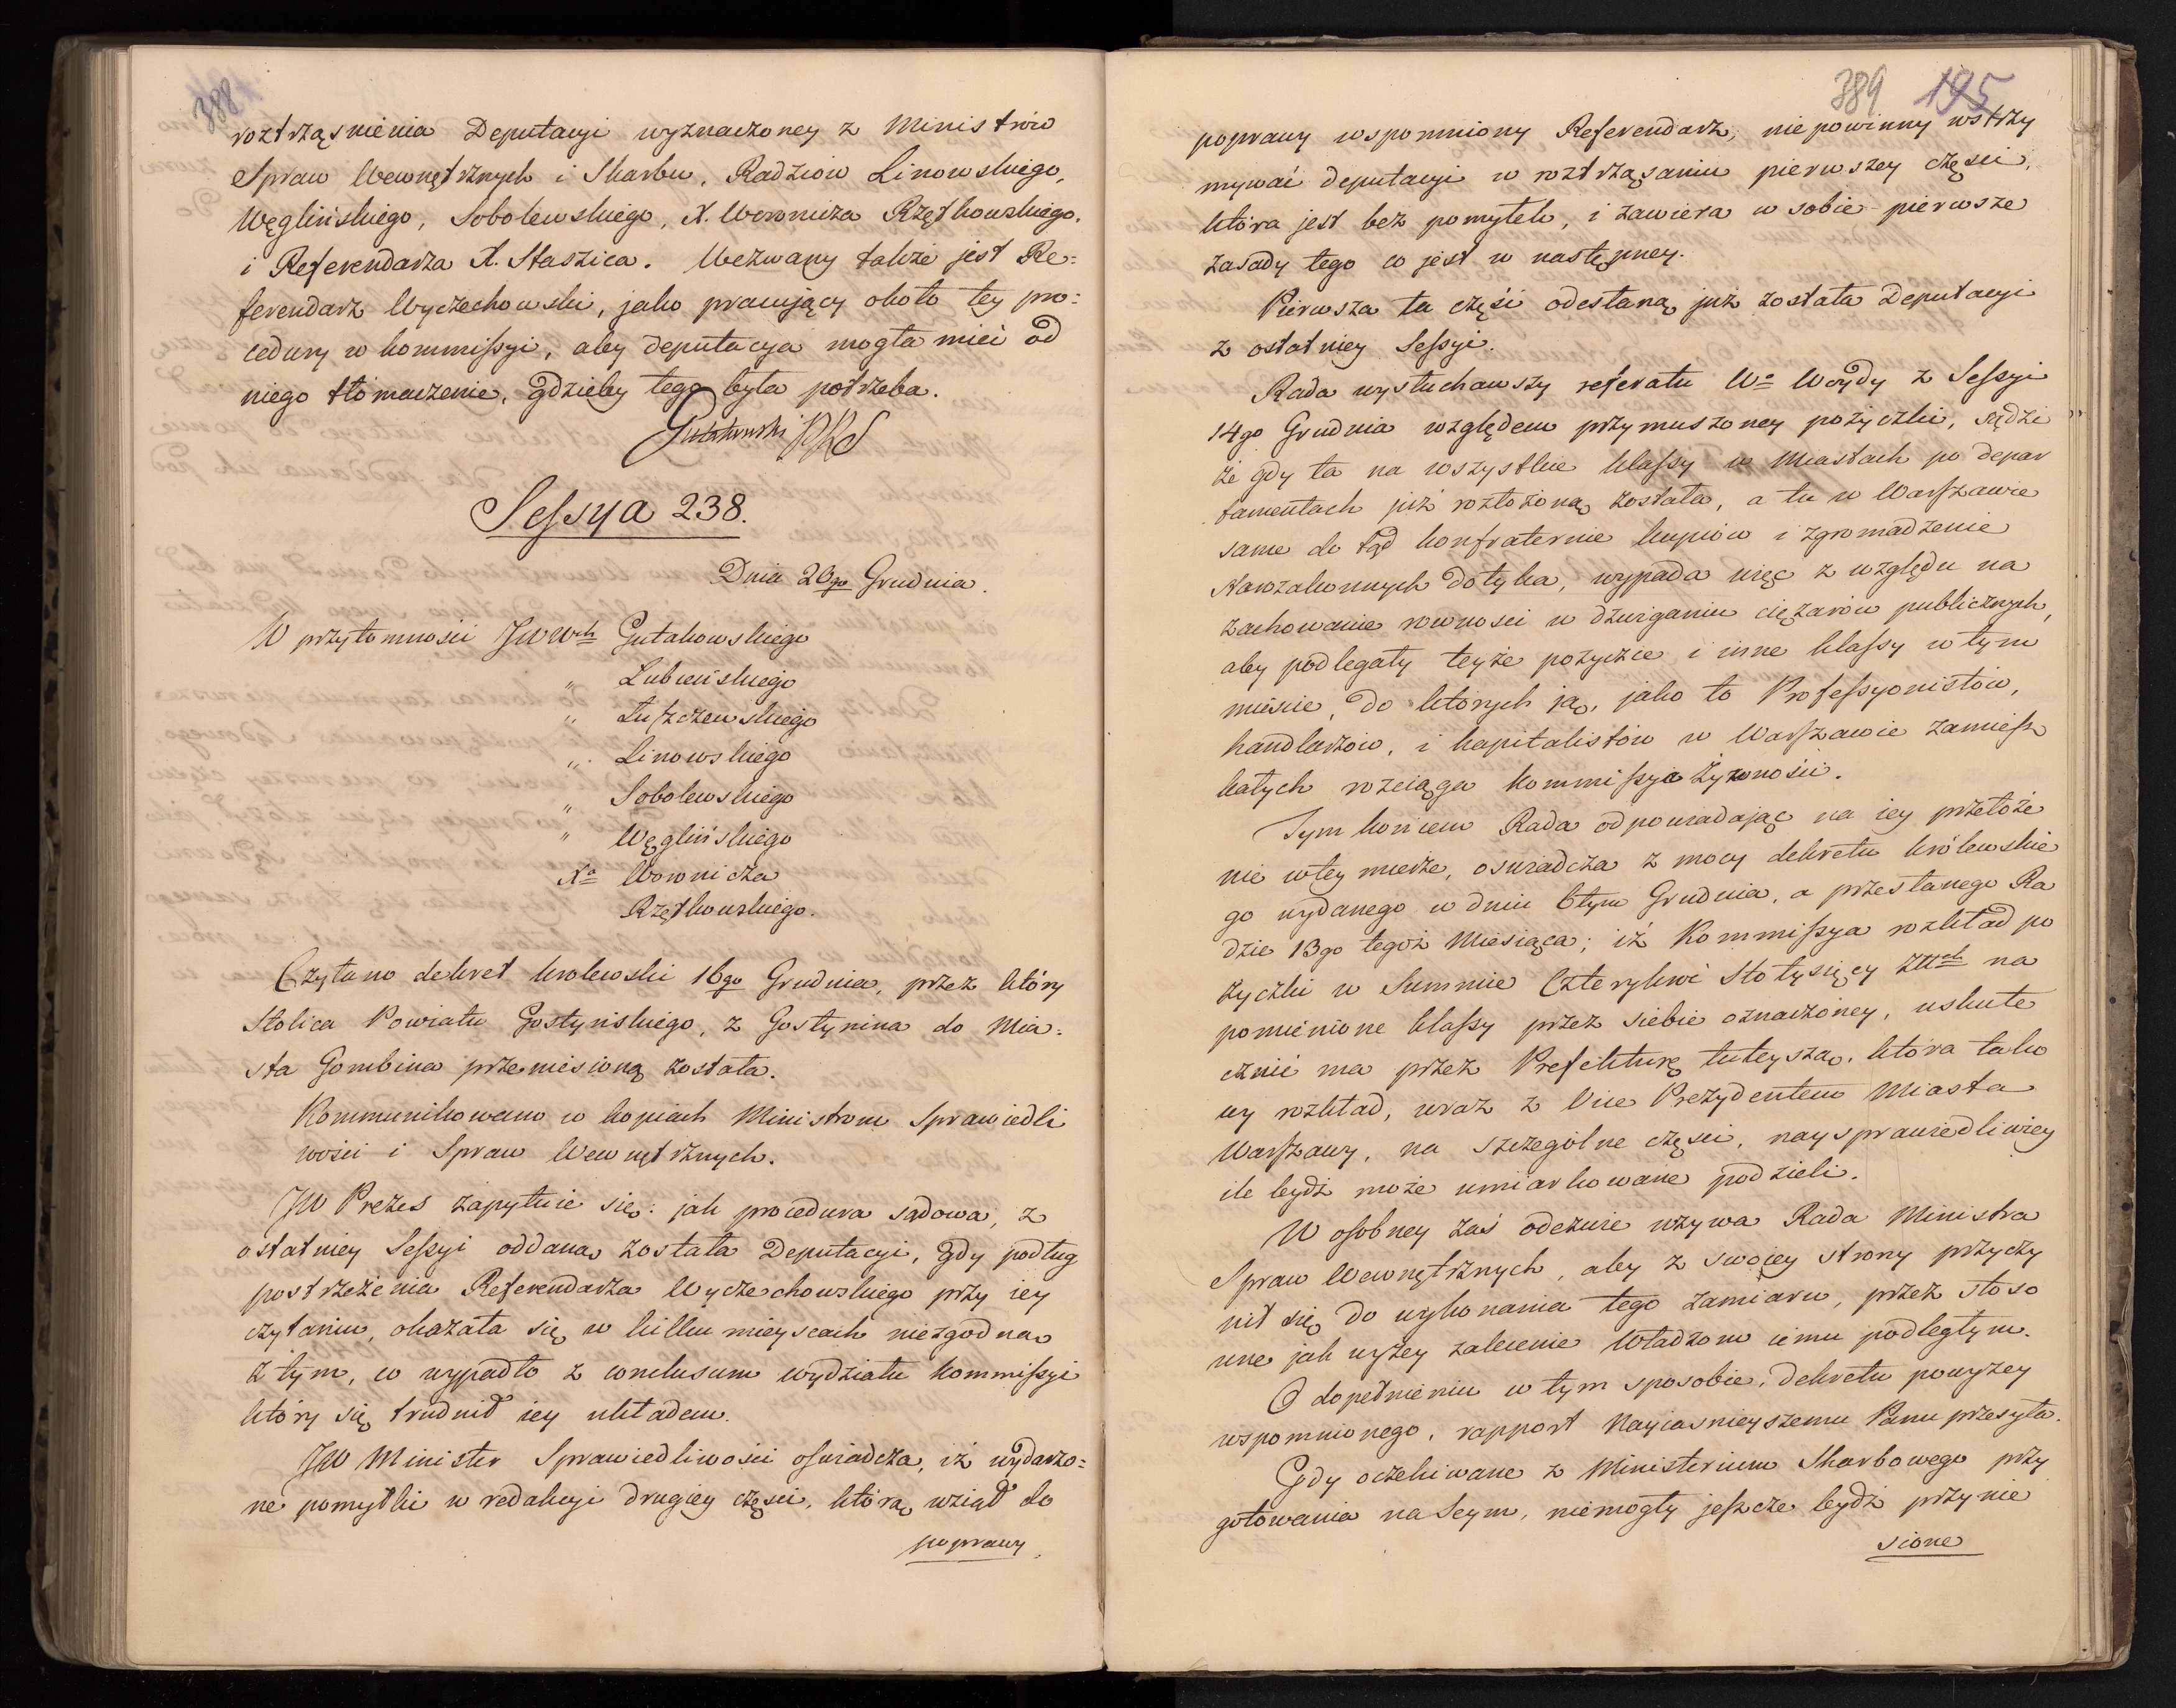 388
roztrząsnienia Deputacyi wyznaczoney z Ministrów
Spraw Wewnętrznych i Skarbu, Radzców Linowskiego,
Węglińskiego, Sobolewskiego, X. Woronicza Rzętkowskiego,
i Referendarza X. Staszica. Wezwany także jest Re=
ferendarz Wyczechowski, jako pracujący około tey pro=
cedury w kommissyi, aby deputacya mogła mieć od
niego tłómaczenie, gdzieby tego była potrzeba.
Gutakowski PRS
Sessya 238.
Dnia 20go Grudnia.
W przytomności JWWch Gutakowskiego
" Lubieńskiego
" Łuszczewskiego
" Linowskiego
" Sobolewskiego
" Węglińskiego
Xa Woronicza
Rzętkowskiego.
Czytano dekret krolewski 16go Grudnia, przez który
Stolica Powiatu Gostyńskiego, z Gostynina do Mia=
sta Gombina przeniesioną została.
Kommunikowano w kopiach Ministrom Sprawiedli
wości i Spraw Wewnętrznych.
JW Prezes zapytuie się: jak procedura sądowa, z
ostatniey Sessyi oddaną została Deputacyi, gdy podług
postrzeżenia Referendarza Wyczechowskiego przy iey
czytaniu, okazała się w kilku mieyscach niezgodną
z tym, co wypadło z conclusum wydziału kommissyi
który się trudnił iey układem.
JW Minister Sprawiedliwości oświadcza, iż wydarzo=
ne pomyłki w redakcyi drugiey części, którą wziął do
poprawy
389 195
poprawy wspomniony Referendarz, niepowinny wstrzy
mywać deputacyi w roztrząsaniu pierwszey części,
która jest bez pomyłek, i zawiera w sobie pierwsze
zasady tego co jest w następney.
Pierwsza ta część odesłaną już została Deputacyi
z ostatniey Sessyi.
Rada wysłuchawszy referatu Wo Woydy z Sessyi
14go Grudnia względem przymuszoney pożyczki, sądzi
że gdy ta na wszystkie klassy w Miastach po depar
tamentach już rozłożoną została, a tu w Warszawie
same do tąd konfraternie kupców i zgromadzenie
Starozakonnych dotyka, wypada więc z względu na
zachowanie równości w dzwiganiu ciężarów publicznych,
aby podlegały teyże pożyczce i inne klassy w tym
mieście, do których ją, jako to Professyonistów,
handlarzów, i kapitalistów w Warszawie zamiesz
kałych rozciąga kommissya żywności.
Tym końcem Rada odpowiadając na iey przełoże
nie w tey mierze, oswiadcza z mocy dekretu królewskie
go wydanego w dniu 6tym Grudnia, a przesłanego Ra
dzie 13go tegoż Miesiąca; iż Kommissya rozkład po
życzki w Summie Czterykroć Stotysięcy Złłch na
pomienione klassy przez siebie oznaczoney, uskute
cznić ma przez Prefekturę tuteyszą, która tako
wy rozkład, wraz z Vice Prezydentem Miasta
Warszawy, na szczególne części, naysprawiedliwiey
ile bydź może umiarkowane podzieli.
W osobney zaś odezwie wzywa Rada Ministra
Spraw Wewnętrznych, aby z swoiey strony przyczy
nił się do wykonania tego zamiaru, przez stoso
wne jak wyżey zalecenie Władzom iemu podległym.
O dopełnieniu w tym sposobie, dekretu powyżey
wspomnionego, rapport Nayiaśnieyszemu Panu przesyła.
Gdy oczekiwane z Ministerium Skarbowego przy
gotowania na Seym, niemogły jeszcze bydź przynie
sione